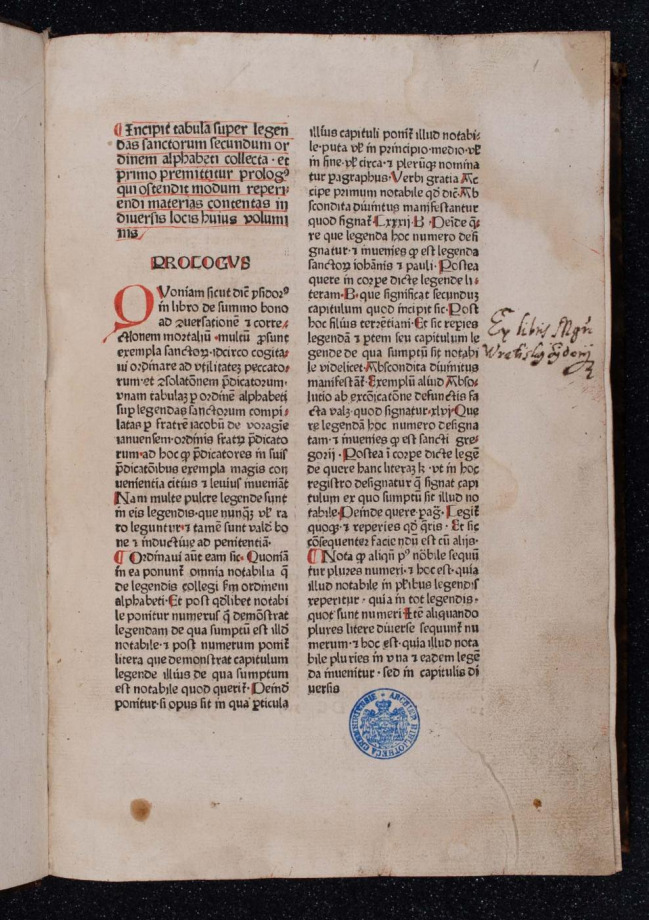 Incipit tabula super legen
das sanctorum secundum or
dinem alphabeti collecta · et
primo premittitur prologꝰ
qui ostendit modum reperi⸗
endi materias contentas in
diuersis locis huius volumi
nis
PROLOGVS
QVoniam sicut dic̄ ysidorꝰ
in libro de summo bono
ad ꝯuersationē ⁊ corre⸗
ctionem mortaliū · multū ꝓsunt
exempla sanctoꝝ · idcirco cogita⸗
ui ordinare ad vtilitatez peccato⸗
rum · et ꝯsolatōnem p̄dicatorum ·
vnam tabulaꝫ ꝑ ordinē alphabeti
suꝑ legendas sanctorum compi⸗
latas ꝑ fratrē iacobū de voragīe
ianuensem · ordinis fratꝝ p̄dicato
rum · ad hoc ꝙ p̄dicatores in suis
p̄dicatōibus exempla magis con
uenientia citius ⁊ leuius inueniāt
Nam multe pulcre legende sunt
in eis legendis · que nunqꝫ vel̄ ra
ro leguntur · ⁊ tamē sunt vald̄ bo
ne ⁊ inductiue ad penitentiā ·
Ordinaui aūt eam sic · Quoniā
in ea ponunt̄ omnia notabilia q̄
de legendis collegi s̄m ordinem
alphabeti · Et post qd̄libet notabi
le ponitur numerus q̄ demōstrat
legendam de qua sumptū est illd̄
notabile · ⁊ post numerum ponit̄
litera que demonstrat capitulum
legende illius de qua sumptum
est notabile quod querit̄ · Deind̄
ponitur · si opus sit in qua ꝑticula
illius capituli ponit̄ illud notabi⸗
le · puta vel̄ in principio · medio · vel̄
in fine · vel̄ circa · ⁊ plerūqꝫ nomina
tur ꝑagraphus · Verbi gratia Ac
cipe primum notabile qd̄ dic̄ · Ab
scondita diuinitus manifestantur
quod signat̄ · Lxxxij · B · Deīde q̄⸗
re que legenda hoc numero desi
gnatur · ⁊ inuenies ꝙ est legenda
sanctoꝝ iohānis ⁊ pauli · Postea
quere in corꝑe dicte legende li⸗
teram · B · que significat secunduꝫ
capitulum quod incipit sic · Post
hoc filius terētiani · Et sic reꝑies
legendā ⁊ ꝑtem seu capitulum le
gende de qua sumptū sit notabi
le videlicet · Abscondita diuinitus
manifestāt̄ · Exemplū aliud · Abso⸗
lutio ab excōicatōne defunctis fa
cta valꝫ · quod signatur · xlvj · Que
re legendā hoc numero designa
tam · ⁊ inuenies ꝙ est sancti gre⸗
gorij · Postea ī corꝑe dicte legē
de quere hanc literaꝫ k · vt in hoc
registro designatur q̄ signat capi
tulum ex quo sumptū sit illud no
tabile · Deinde quere ꝑag̃ · Legit̄
quoqꝫ · ⁊ reperies qd̄ q̄ris · Et sic
cōsequenter faciendū est cū alijs ·
Nota ꝙ aliqn̄ pꝰ nōbile sequūt
tur plures numeri · ⁊ hoc est · quia
illud notabile in pl̄ribus legendis
reperitur · quia in tot legendis ·
quot sunt numeri · Itē aliquando
plures litere diuerse sequunt̄ nu
merum · ⁊ hoc est · quia illud nota
bile pluries in vna ⁊ eadem legē
da inuenitur · sed in capitulis di
uersis
Ex libris